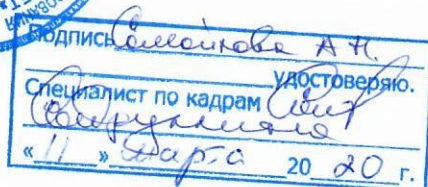 Подпись Самойлова А Н.
удостоверяю.
Специалист по кадрам
«11» марта 2020 г.